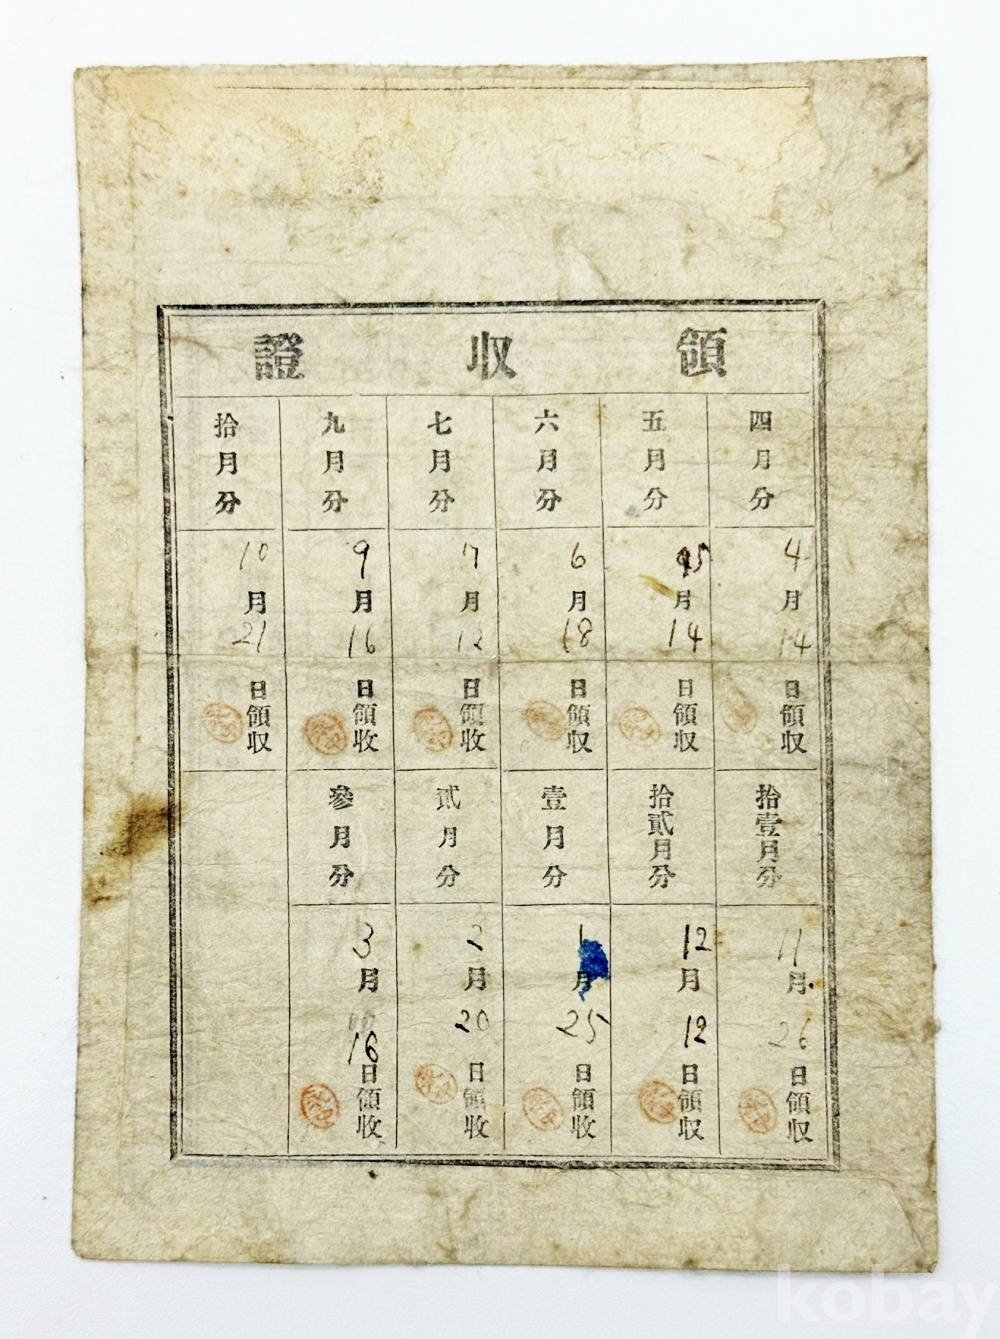 領收證
四月分
4月14日領収
五月分
5月14日領収
六月分
6月18日領収
七月分
7月12日領收
九月分
9月16日領收
拾月分
10月21日領収
拾壹月分
11月26日領収
拾貳月分
12月12日領収
壹月分
1月25日領收
貳月分
2月20日領收
參月分
3月16日領收
kobay